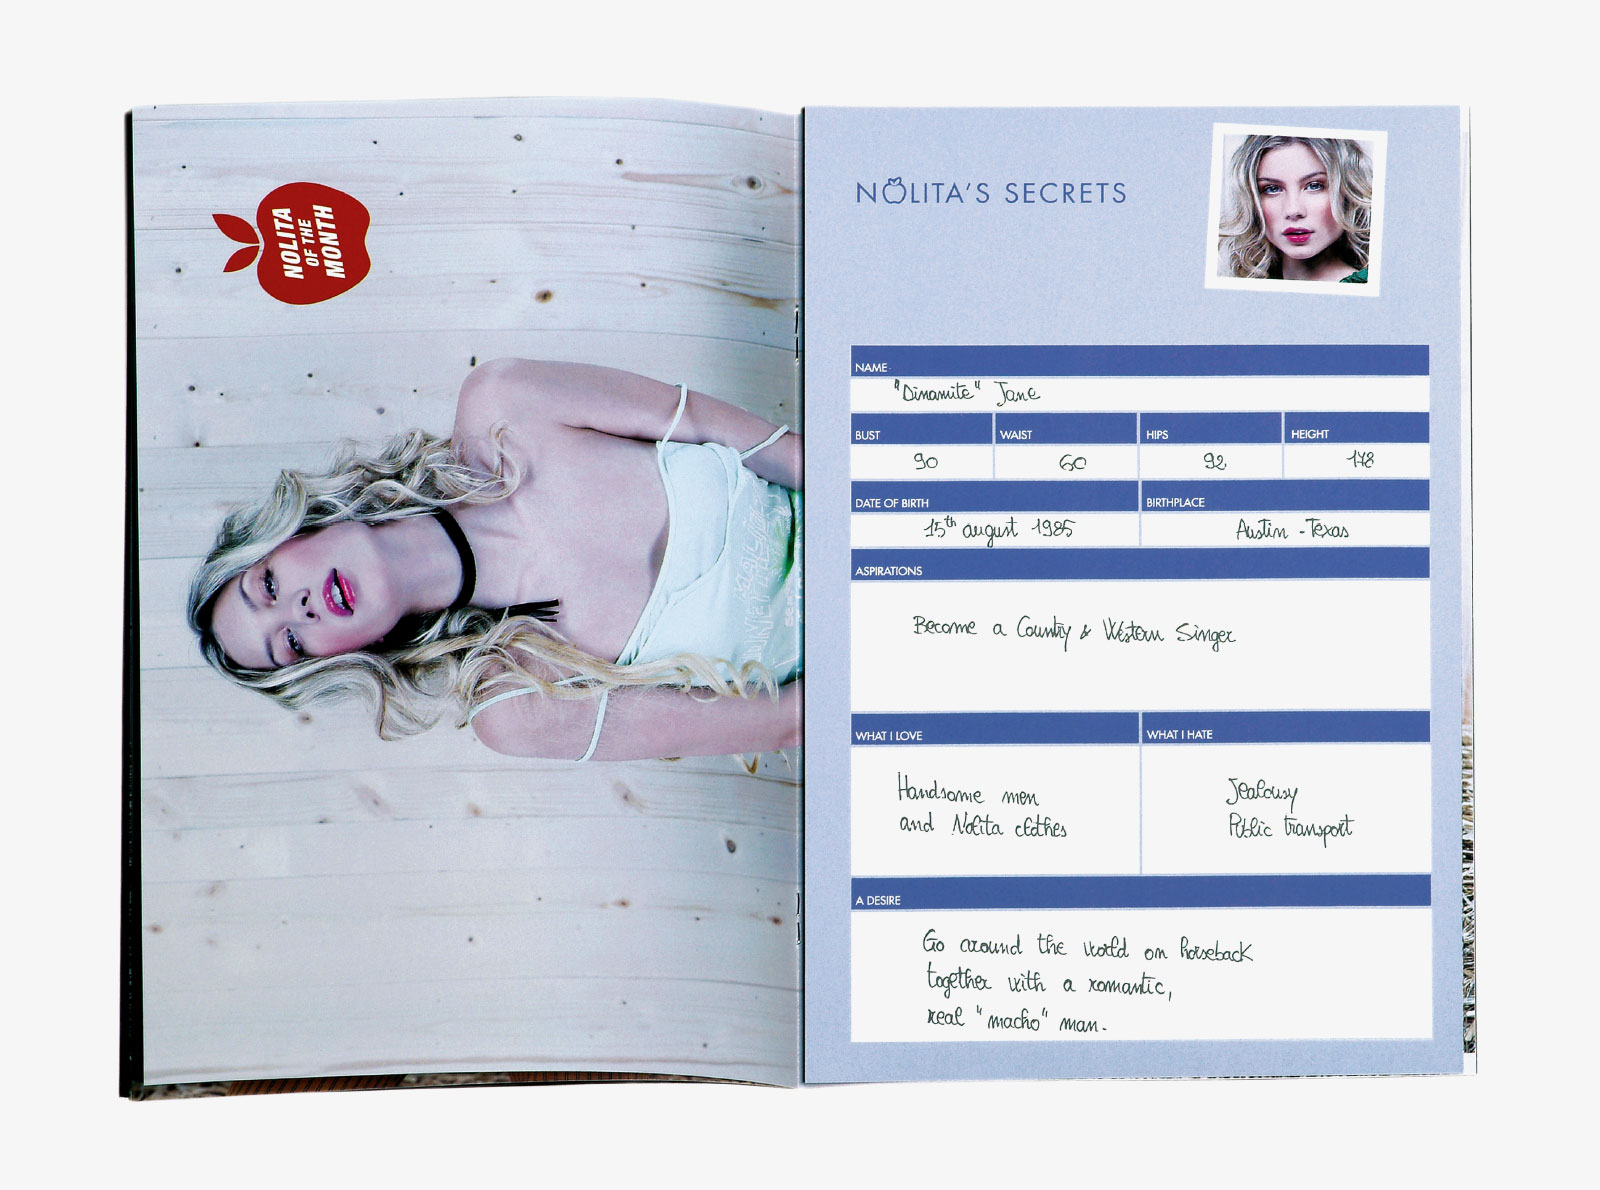 NOLITA
OF THE
MONTH
NOLITA'S SECRETS
NAME
"Dinamite" Jane
BUST WAIST HIPS HEIGHT
90 60 92 178
DATE OF BIRTH BIRTHPLACE
15th august 1985 Austin - Texas
ASPIRATIONS
Become a Country & Western Singer
WHAT I LOVE WHAT I HATE
Handsome men
and Nolita clothes
Jealousy
Public transport
A DESIRE
Go around the world on horseback
together with a romantic,
real "macho" man.